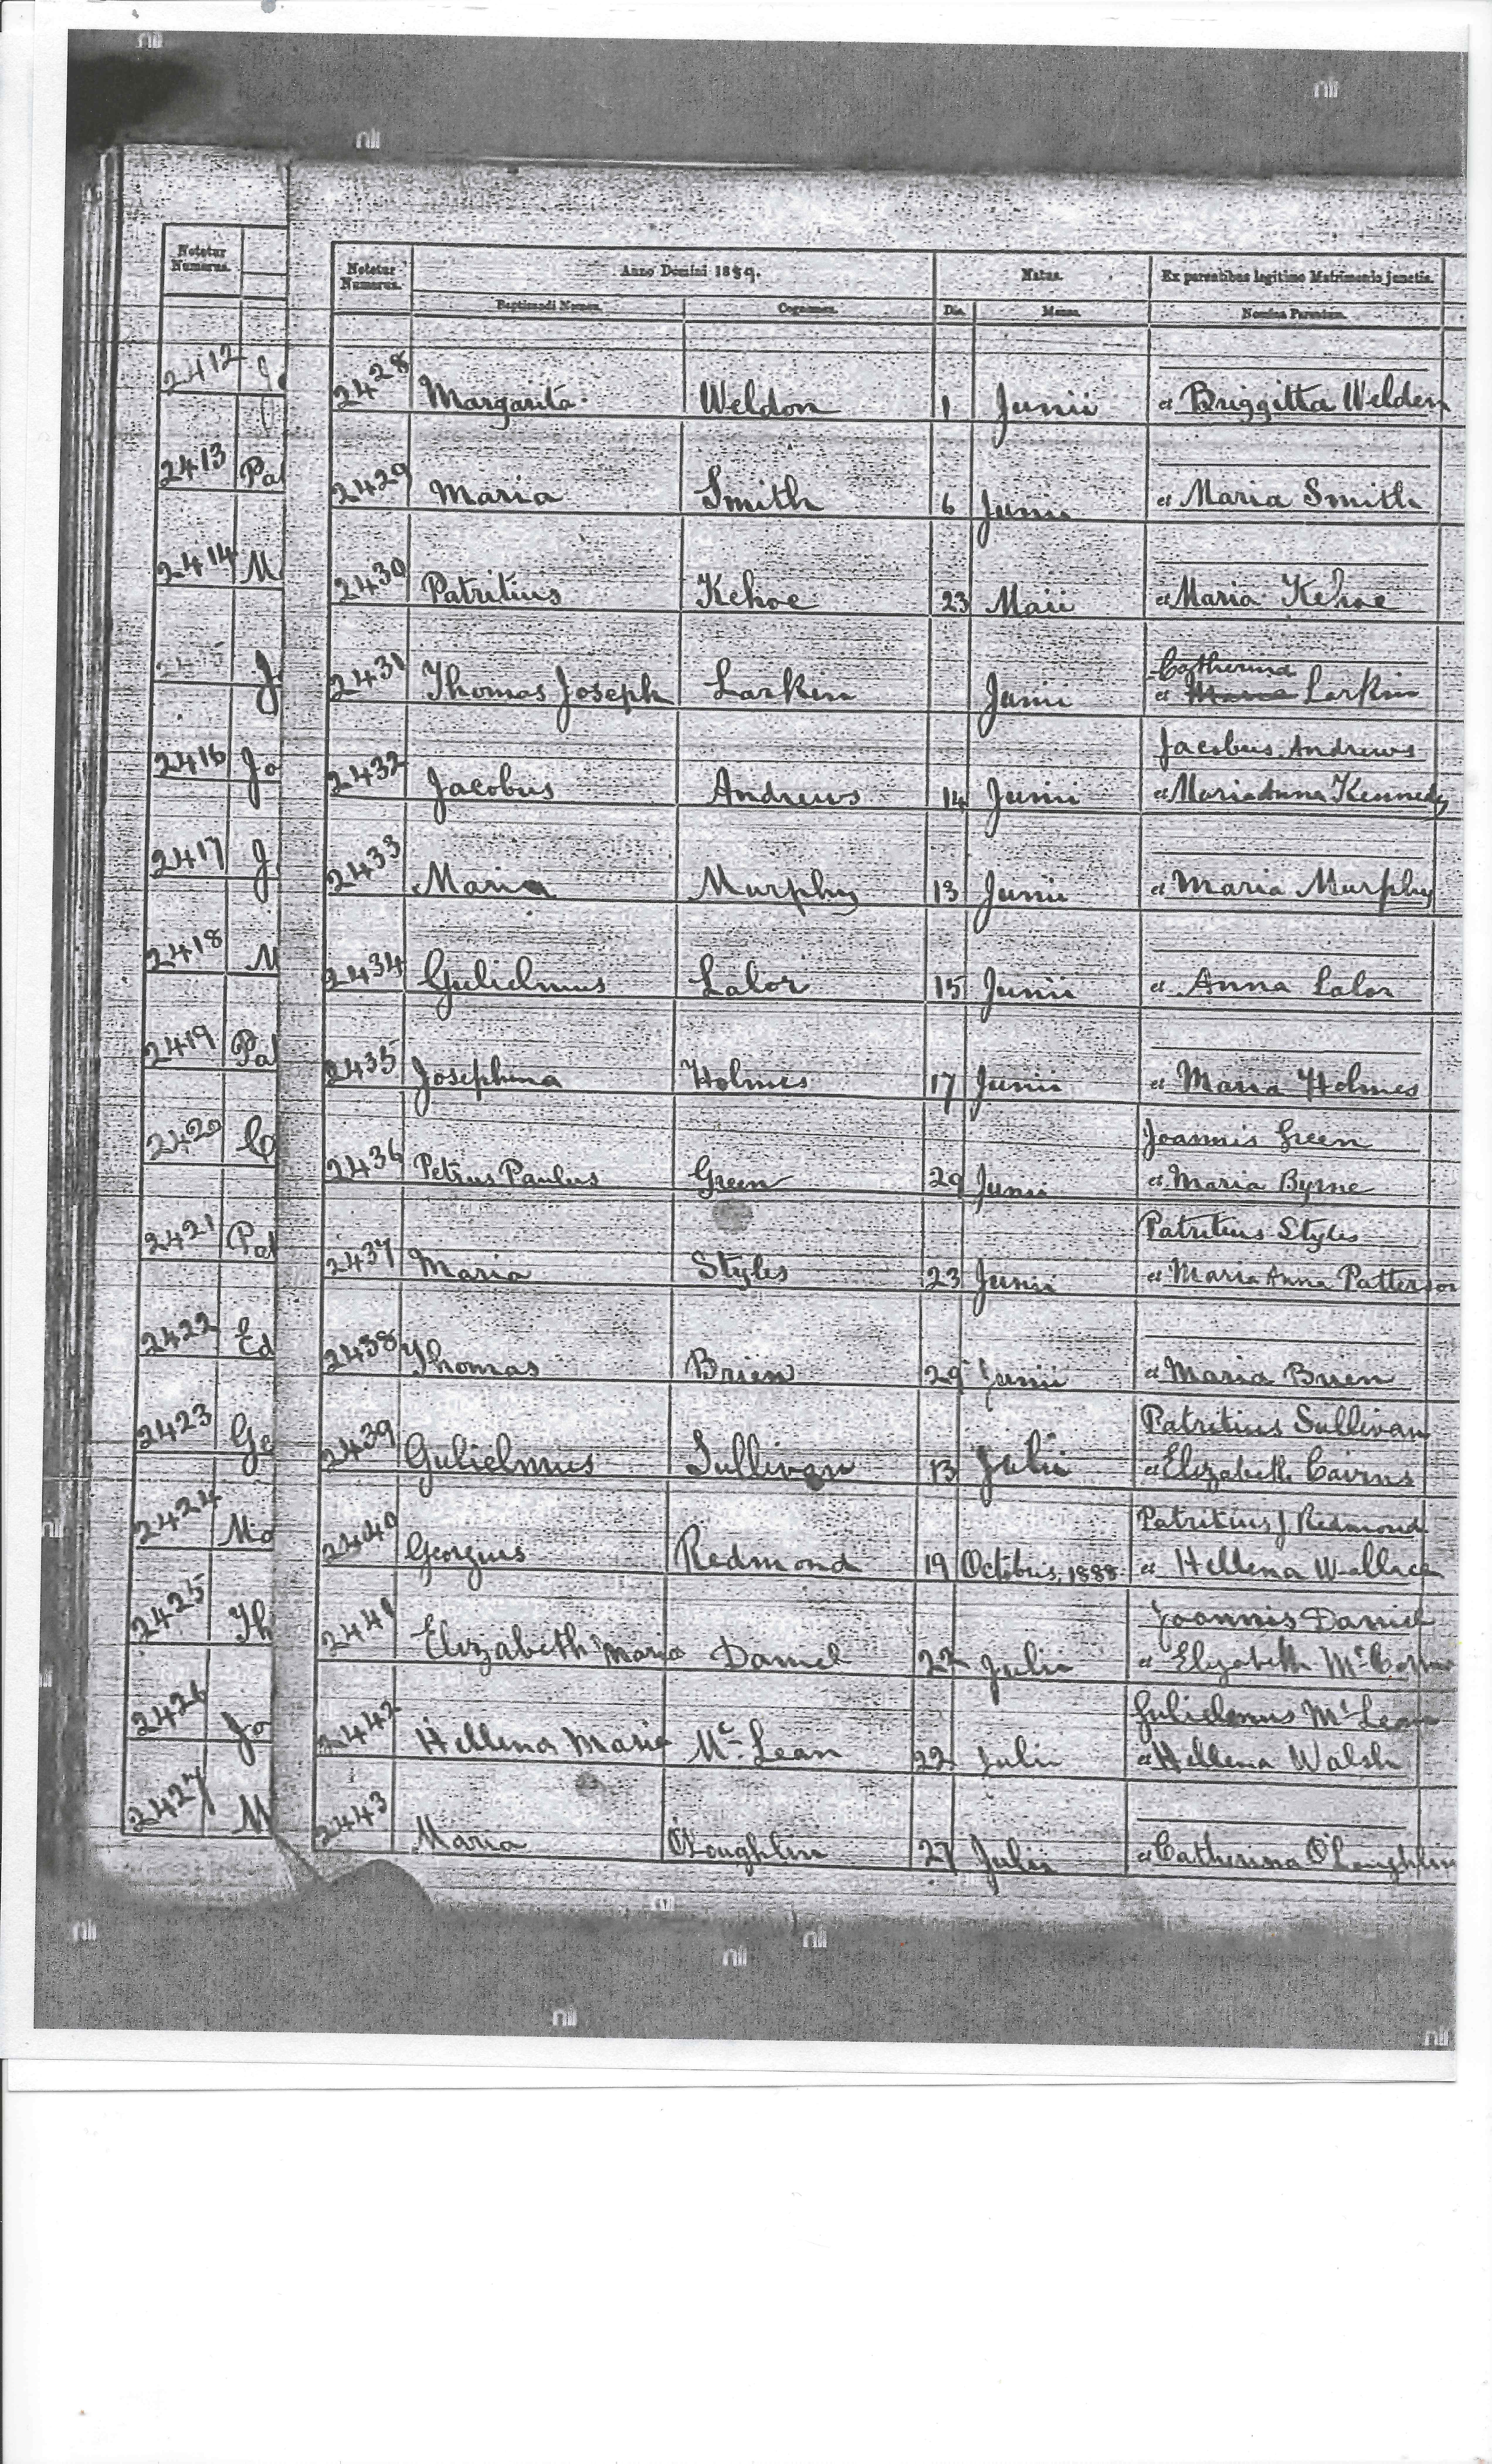 Notetur Numerus.
Notetur Numerus. Anno Domini 1889. Natus. Ex parentibus legitimo Matrimonio junctis.
Baptizandi Nomen. Cognomen. Die. Mense. Nomina Parentum.
2412
2428 Margarita Weldon 1 Junii et Briggitta Weldon
2413 Pa
2429 Maria Smith 6 Junii et Maria Smith
2414 M
2430 Patritius Kehoe 23 Maii et Maria Kehoe
2415 J
Catherina
2431 Thomas Joseph Larkin Junii et Larkin
2416 Jo
Jacobus Andrews
2432 Jacobus Andrews 14 Junii et Maria Anna Kennedy
2417 J
2433 Maria Murphy 13 Junii et Maria Murphy
2418 M
2434 Gulielmus Lalor 15 Junii et Anna Lalor
2419 Pa
2435 Josephina Holmes 17 Junii et Maria Holmes
2420 Ca
Joannis Green
2436 Petrus Paulus Green 29 Junii et Maria Byrne
2421 Pat
Patritius Styles
2437 Maria Styles 23 Junii et Maria Anna Patterson
2422 Ed
2438 Thomas Brien 29 Junii et Maria Brien
2423 Ge
Patritius Sullivan
2439 Gulielmus Sullivan 13 Julii et Elizabeth Cairns
2424 Ma
Patritius J Redmond
2440 Georgius Redmond 19 Octobris, 1888 et Hellena Wallace
2425 Th
Joannis Daniel
2441 Elizabeth Maria Daniel 22 Julii et Elizabeth
2426 Jo
Gulielmus Mc Lean
2442 Hellena Maria Mc Lean 22 Julii et Hellena Walsh
2427 M
2443 Maria O'Loughlin 27 Julii et Catherina O'Loughlin
nli